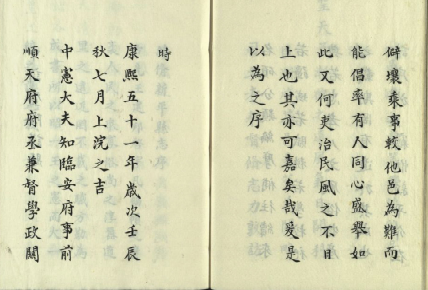 僻壤乘事較他邑為難而
能倡率有人同心盛舉如
此又何吏治民風之不日
上也其亦可嘉矣哉爰是
以為之序
時
康熙五十一年歲次壬辰
秋七月上浣之吉
中憲大夫知臨安府事前
順天府府丞兼督學政闗